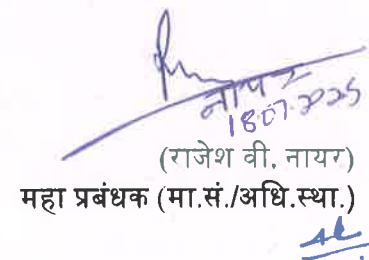 नायर
18.07.2025
(राजेश वी. नायर)
महा प्रबंधक (मा.सं./अधि.स्था.)